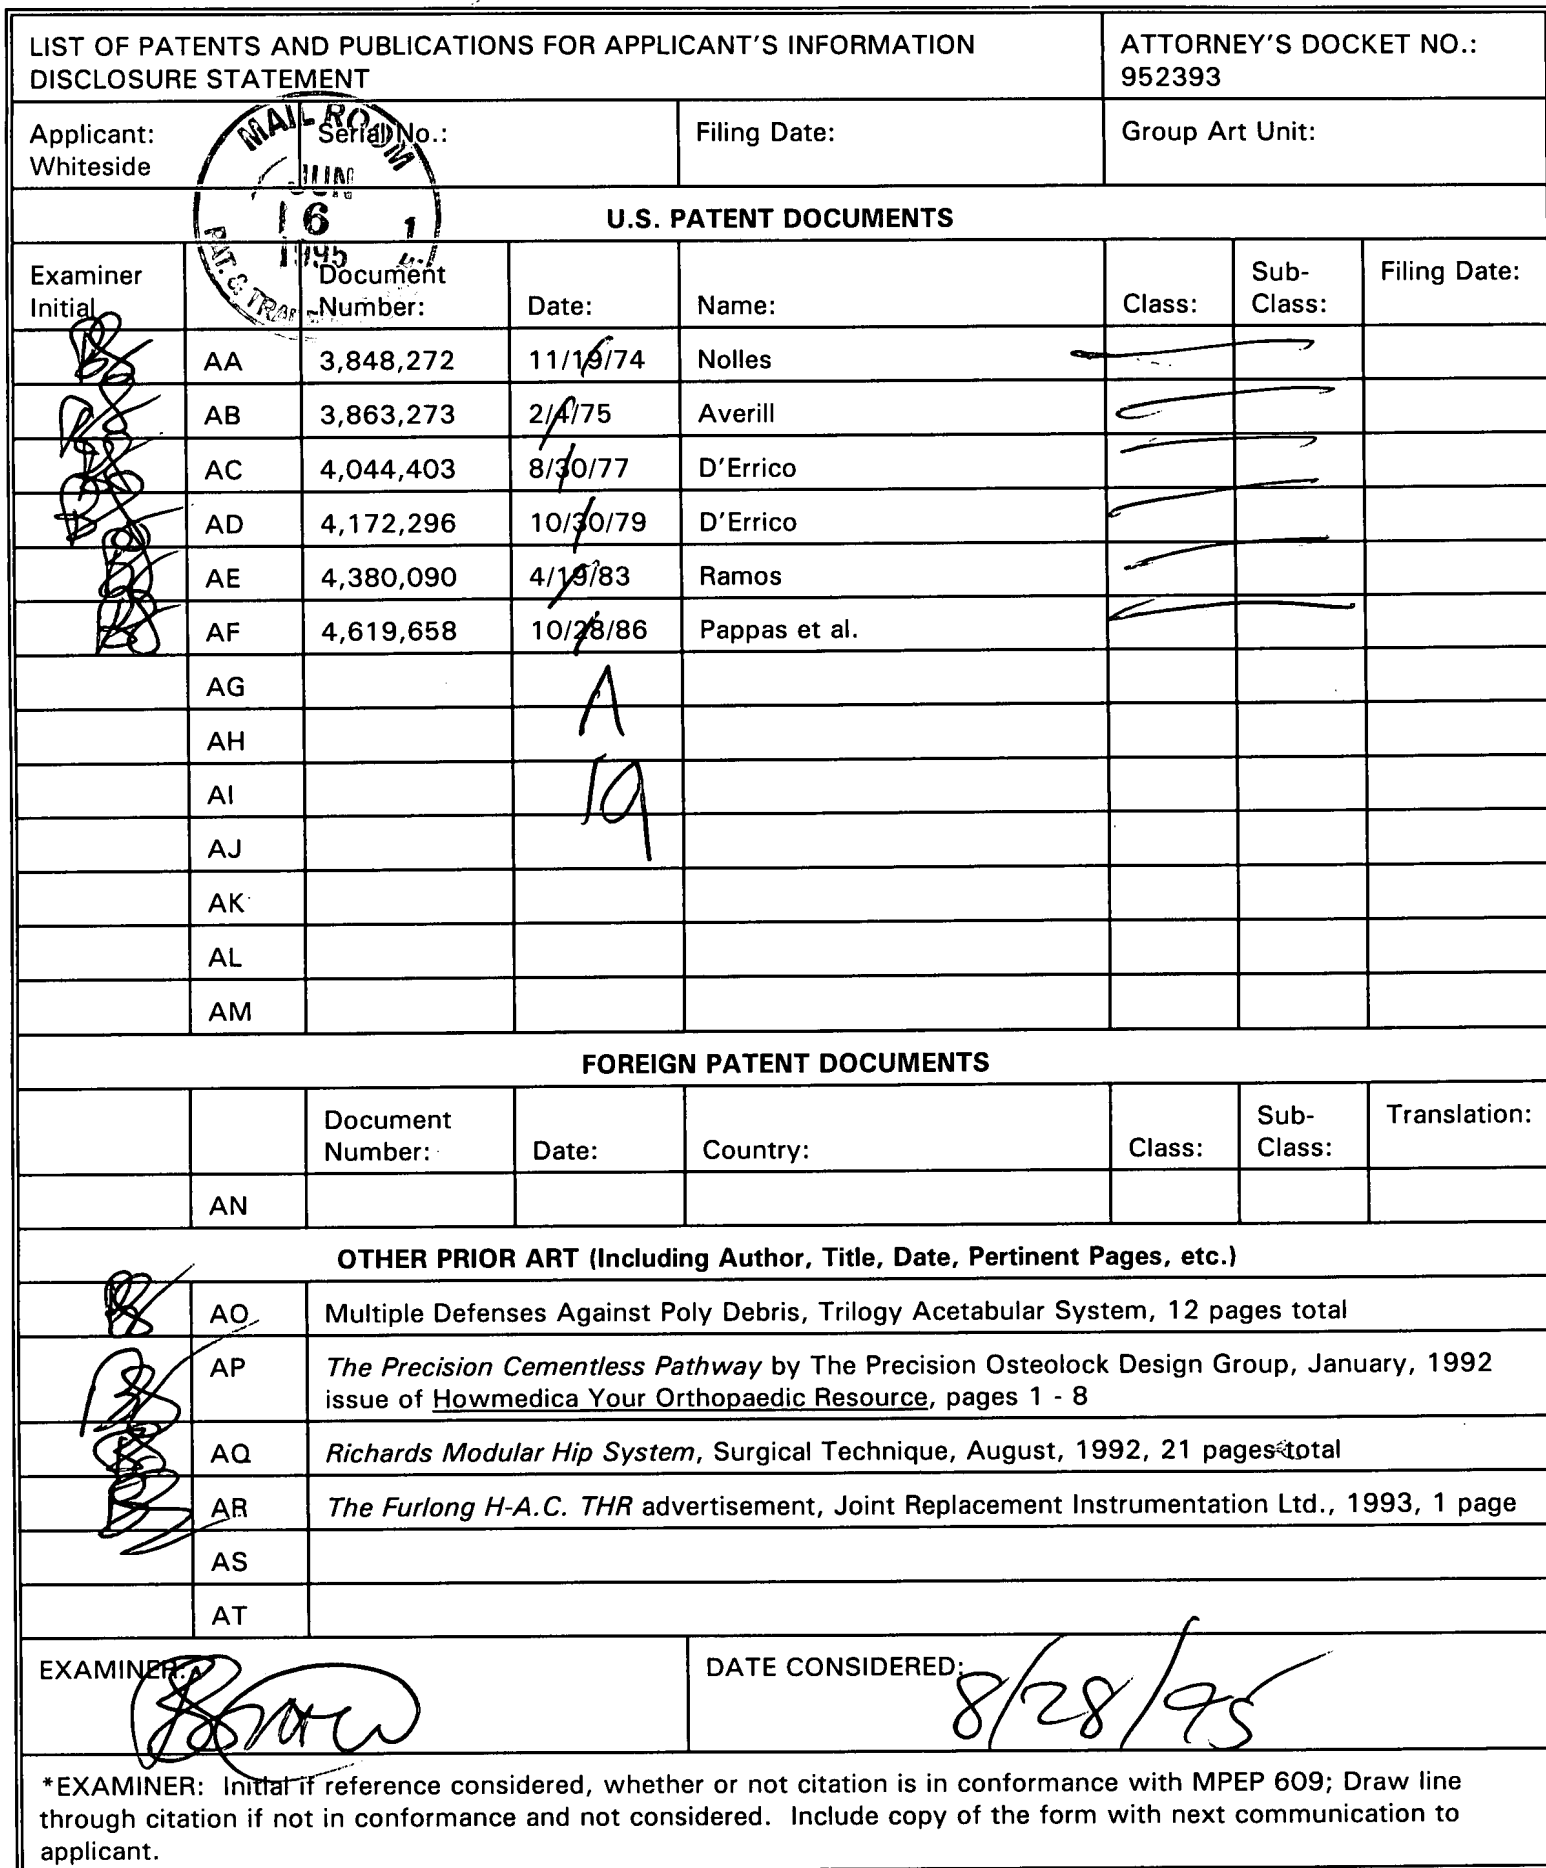 LIST OF PATENTS AND PUBLICATIONS FOR APPLICANT'S INFORMATION
DISCLOSURE STATEMENT
ATTORNEY'S DOCKET NO.:
952393
Applicant:
Whiteside
Serial No.:
Filing Date:
Group Art Unit:
MAIL ROOM
JUN
6
1995
PAT. &
U.S. PATENT DOCUMENTS
Examiner
Initial
Document
Number:
Date:
Name:
Class:
Sub-
Class:
Filing Date:
AA 3,848,272 11/19/74 Nolles
AB 3,863,273 2/4/75 Averill
AC 4,044,403 8/30/77 D'Errico
AD 4,172,296 10/30/79 D'Errico
AE 4,380,090 4/19/83 Ramos
AF 4,619,658 10/28/86 Pappas et al.
AG
AH
AI
AJ
AK
AL
AM
FOREIGN PATENT DOCUMENTS
Document
Number:
Date:
Country:
Class:
Sub-
Class:
Translation:
AN
OTHER PRIOR ART (Including Author, Title, Date, Pertinent Pages, etc.)
AO Multiple Defenses Against Poly Debris, Trilogy Acetabular System, 12 pages total
AP The Precision Cementless Pathway by The Precision Osteolock Design Group, January, 1992
issue of Howmedica Your Orthopaedic Resource, pages 1 - 8
AQ Richards Modular Hip System, Surgical Technique, August, 1992, 21 pages total
AR The Furlong H-A.C. THR advertisement, Joint Replacement Instrumentation Ltd., 1993, 1 page
AS
AT
EXAMINER:
DATE CONSIDERED:
8/28/95
*EXAMINER: Initial if reference considered, whether or not citation is in conformance with MPEP 609; Draw line
through citation if not in conformance and not considered. Include copy of the form with next communication to
applicant.